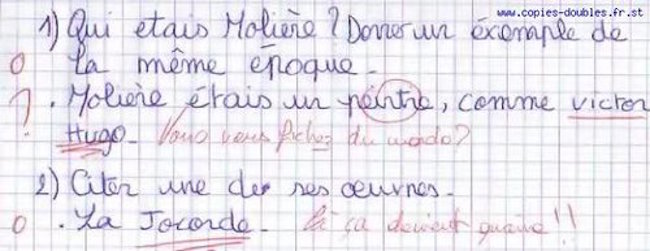 www.copies-doubles.fr.st
1) Qui etais Molière ? Donner un éxemple de
0 la même époque.
? . Molière étais un peintre, comme victor
Hugo. Vous vous fichez du monde?
2) Citer une de ses œuvres.
0 . La Joconde. là ça devient grave!!